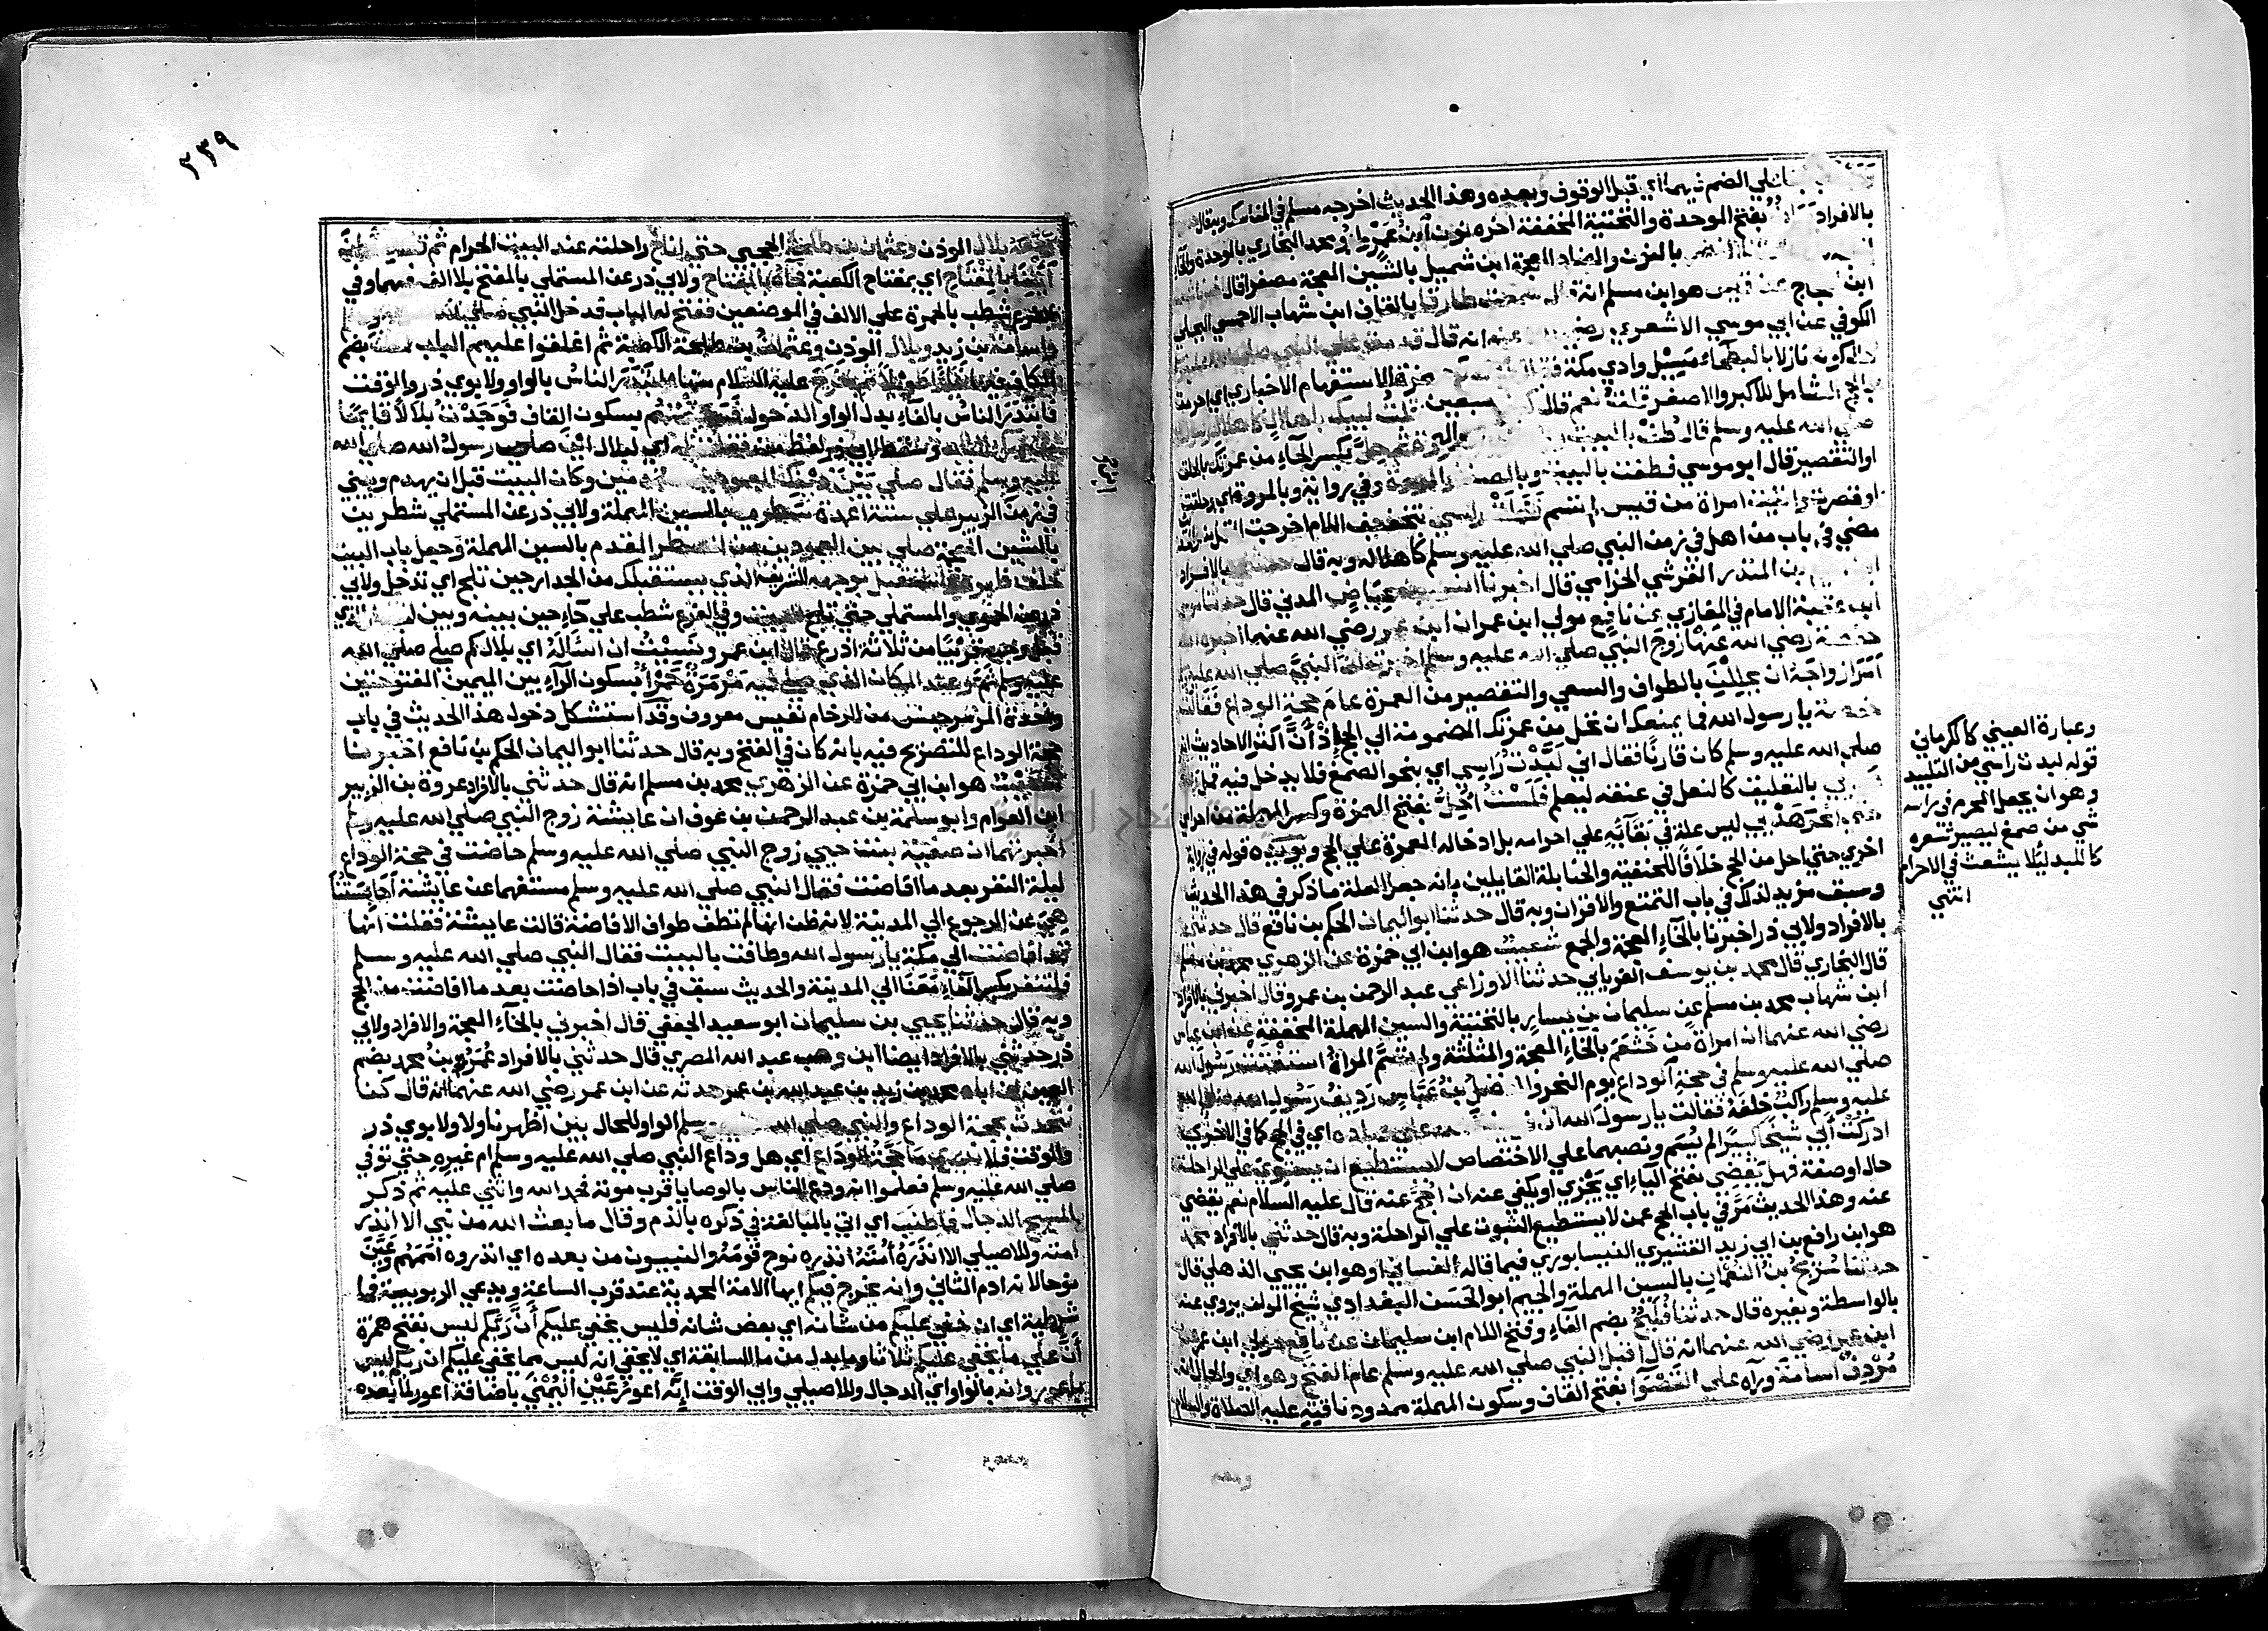 علي الضم فيهما اي قبل الوقوف وبعده وهذا الحديث اخرجه مسلم في المناسك وبه قال
بالافراد بفتح الموحدة والتحتية المخففة اخره نون ابن عمرو ابو محمد البخاري بالموحدة والخاء
بالنون والضاد المعجمة ابن شميل بالشين المعجمة مصغرا قال
ابن حجاج عن قيس هو ابن مسلم انه قال سمعت طارقا بالقاف ابن شهاب الاحمسي البجلي
الكوفي عن ابي موسي الاشعري رضي عنه انه قال قدمت علي النبي صلي الله عليه
نازلا بالبطحاء مسيل وادي مكة بهمزة الاستفهام الاخباري اي احرمت
بالحج الشامل للاكبر والاصغر قلت نعم قال كيف قلت لبيك باهلال كاهلال رسول
صلي الله عليه وسلم قال طف بالبيت والمروة ثم حل بكسر الحاء من عمرتك بالحلق
او التقصير قال ابو موسي فطفت بالبيت وبالصفا والمروة وفي رواية وبالمروة
امراة من قيس لم تسم ففلت راسي بتخفيف اللام اخرجت القمل منه
مضي في باب من اهل في زمن النبي صلي الله عليه وسلم كاهلاله وبه قال حدثني بالافراد
بن المنذر القرشي الحزامي قال اخبرنا انس بن عياض المدني قال حدثنا موسي
ابن عقبة الامام في المغازي عن نافع مولي ابن عمر ان ابن عمر رضي الله عنهما اخبره ان
حفصة رضي الله عنها زوج النبي صلي الله عليه وسلم اخبرته ان النبي صلي الله عليه
امر ازواجه ان يحللن بالطواف والسعي والتقصير من العمرة عام حجة الوداع فقالت
حفصة يا رسول الله فما يمنعك ان تحل من عمرتك المضمومة الي الحج اذ ان اكثر الاحاديث انه
صلي الله عليه وسلم كان قارنا فقال اني لبدت راسي اي بنحو الصمغ فلا يدخل فيه قمل
بالتعليق كالنعل في عنقه ليعلم فلست احل بفتح الهمزة وكسر المهملة من احرامي
حتي انحر هديي ليس علة في بقائه علي احرامه بل ادخاله العمرة علي الحج ويويده قوله في رواية
اخري حتي احل من الحج خلافا للحنفية والحنابلة القايلين بانه جعل العلة ما ذكر في هذا الحديث
وسبق مزيد لذلك في باب التمتع والاقران وبه قال حدثنا ابو اليمان الحكم بن نافع قال حدثني
بالافراد ولابي ذر اخبرنا بالخاء المعجمة والجمع شعيب هو ابن ابي حمزة عن الزهري محمد بن مسلم
قال البخاري قال محمد بن يوسف الفريابي حدثنا الاوزاعي عبد الرحمن بن عمرو قال اخبرني بالافراد
ابن شهاب محمد بن مسلم عن سليمان بن يسار بالتحتية والسين المهملة المخففة عن ابن عباس
رضي الله عنهما ان امراة من خثعم بالخاء المعجمة والمثلثة ولم تسم المراة استفتت رسول الله
صلي الله عليه وسلم في حجة الوداع يوم النحر والفضل بن عباس رديف رسول الله صلي الله
عليه وسلم راكب خلفه فقالت يا رسول الله ان علي عباده اي في الحج كما في الاخري
ادركت ابي شيخا كبيرا لم يسم ونصبهما علي الاختصاص لا يستطيع ان يستوي علي الراحلة
حال او صفة فهل يقضي بفتح الياء اي يجزي او يكفي عنه ان احج عنه قال عليه السلام نعم يقضي
عنه وهذا الحديث مر في باب الحج عمن لا يستطيع الثبوت علي الراحلة وبه قال حدثني بالافراد محمد
هو ابن رافع بن ابي زيد القشيري النيسابوري فيما قاله الغساني او هو ابن يحيي الذهلي قال
حدثنا سريج بن النعمان بالسين المهملة والجيم ابو الحسن البغدادي شيخ المولف يروي عنه
بالواسطة وبغيره قال حدثنا فليح بضم الفاء وفتح اللام ابن سليمان عن نافع مولي ابن عمر
ابن عمر رضي الله عنهما انه قال اقبل النبي صلي الله عليه وسلم عام الفتح وهو اي والحال انه
مردف اسامة وراه علي القصوا بفتح القاف وسكون المهملة ممدودا ناقته عليه الصلاة والسلام
وعبارة العيني كالكرماني
قوله لبدت راسي من التلبيد
وهو ان يجعل المحرم في راسه
شي من صمغ ليصير شعره
كاللبد ليلا يشعث في الاحرام
انتهي
٢٣٩
ومعه بلال الموذن وعثمان بن طلحة الحجبي حتي اناخ راحلته عند البيت الحرام ثم قال
ايتنا بالمفتاح اي بمفتاح الكعبة فجاه بالمفتاح ولابي ذر عن المستملي بالمفتح بلا الف فيهما وفي
الفرع شطب بالحمرة علي الالف في الموضعين ففتح له الباب فدخل النبي صلي الله
واسامة بن زيد وبلال الموذن وعثمان بن طلحة الكعبة ثم اغلقوا عليهم الباب
نهارا طويلا ثم خرج عليه السلام منها وابتدر الناس بالواو ولابوي ذر والوقت
فابتدر الناس بالفاء بدل الواو الدخول فسبقتهم بسكون القاف فوجدت بلالا قايما
وسقط لابي ذر لفظ من فقلت له اي لبلال اين صلي رسول الله صلي الله
عليه وسلم فقال صلي بين ذينك العمودين المقدمين وكان البيت قبل ان يهدم ويبني
في زمن الزبير علي ستة اعمدة سطرين بالسين المهملة ولابي ذر عن المستملي شطرين
بالشين المعجمة صلي بين العمودين من السطر المقدم بالسين المهملة وجعل باب البيت
خلف ظهره واستقبل بوجهه الشريف الذي يستقبلك من الجدار حين تلج اي تدخل ولابي
ذر عن الحموي والمستملي حتي تلج البيت وفي الفرع شطب علي حاء حين بينه وبين الجدار الذي
قبل وجهه قريبا من ثلاثة اذرع قال ابن عمر ونسيت ان اساله اي بلالا كم صلي صلي الله
عليه وسلم ثم وعند المكان الذي صلي فيه مرمرة حمرا بسكون الراء بين الميمين المفتوحتين
واحدة المرمر جنس من الرخام نفيس معروف وقد استشكل دخول هذا الحديث في باب
حجة الوداع للتصريح فيه بانه كان في الفتح وبه قال حدثنا ابو اليمان الحكم بن نافع اخبرنا
شعيب هو ابن ابي حمزة عن الزهري محمد بن مسلم انه قال حدثني بالافراد عروة بن الزبير
ابن العوام وابو سلمة بن عبد الرحمن بن عوف ان عايشة زوج النبي صلي الله عليه وسلم
اخبرتهما ان صفية بنت حيي زوج النبي صلي الله عليه وسلم حاضت في حجة الوداع
ليلة النفر بعد ما افاضت فقال النبي صلي الله عليه وسلم مستفهما عن عايشة احابستنا
هي عن الرجوع الي المدينة لانه ظن انها لم تطف طواف الافاضة قالت عايشة فقلت انها
قد افاضت الي مكة يا رسول الله وطافت بالبيت فقال النبي صلي الله عليه وسلم
فلتنفر بكسر الفاء معنا الي المدينة والحديث سبق في باب اذا حاضت بعد ما افاضت من الحج
وبه قال حدثنا يحيي بن سليمان ابو سعيد الجعفي قال اخبرني بالخاء المعجمة والافراد ولابي
ذر حدثني بالافراد ايضا ابن وهب عبد الله المصري قال حدثني بالافراد عمر بن محمد بضم
العين ان اباه محمد بن زيد بن عبد الله بن عمر حدثه عن ابن عمر رضي الله عنهما انه قال كنا
نتحدث بحجة الوداع والنبي صلي الله وسلم الواو للحال بين اظهرنا ولا ولابوي ذر
والوقت فلا ندري ما حجة الوداع اي هل وداع النبي صلي الله عليه وسلم ام غيره حتي توفي
صلي الله عليه وسلم فعلموا انه ودع الناس بالوصايا قرب موته فحمد الله واثني عليه ثم ذكر
المسيح الدجال فاطنب اي اتي بالمبالغة في ذكره بالذم وقال ما بعث الله من نبي الا انذر
امته وللاصيلي الا انذره امته انذره نوح قومه والنبيون من بعده اي انذروه اممهم وعين
نوحا لانه ادم الثاني وانه يخرج فيكم ايها الامة المحمدية عند قرب الساعة ويدعي الربوبية فما
شرطية اي ان خفي عليكم من شانه اي بعض شانه فليس يخفي عليكم ان ربكم ليس بفتح همزة
ان علي ما يخفي عليكم ثلاثا وما بدل من ما السابقة اي لا يخفي انه ليس مما يخفي عليكم ان ربكم ليس
باعور وانه بالواو اي الدجال وللاصيلي وابي الوقت انه اعور عين اليمني باضافة اعور لما بعده